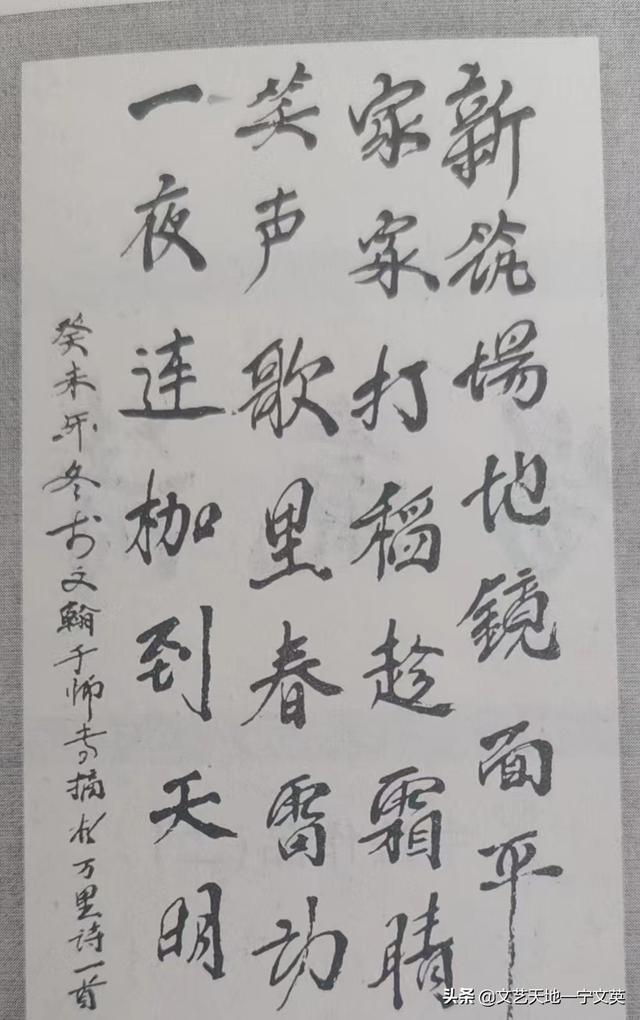 新筑場地鏡面平
家家打稻趁霜晴
笑声歌里春雷动
一夜連枷到天明
癸未年冬文翰于师专摘万里诗一首
头条 @文艺天地一宁文英